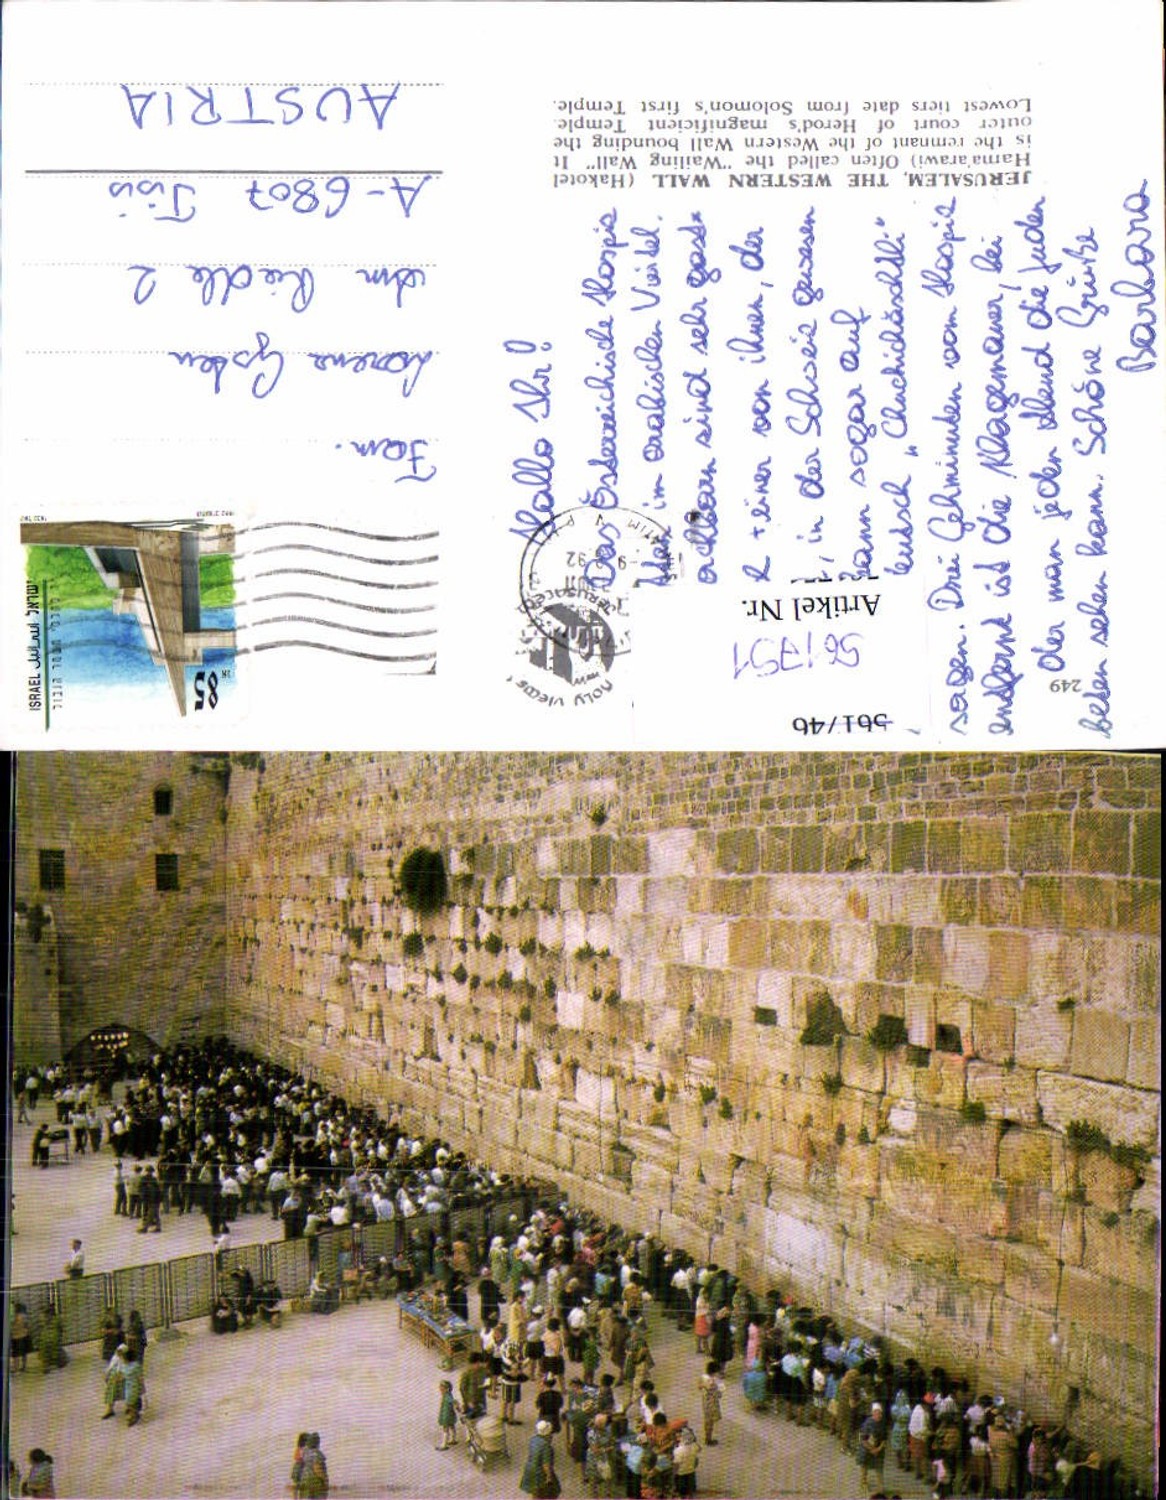 JERUSALEM, THE WESTERN WALL (Hakotel
Hama'arawi) Often called the "Wailing Wall" It
is the remnant of the Western Wall bounding the
outer court of Herod's magnificient Temple.
Lowest tiers date from Solomon's first Temple.
Hallo Ihr!
Das Österreichische Hospiz
im arabischen Viertel.
sind sehr gast-
einer von ihnen, der
, in der Schweiz gewesen
kann sogar auf
deutsch „Chuchichäschtli"
sagen. Drei Gehminuten vom Hospiz
entfernt ist die Klagemauer, bei
der man jeden Abend die Juden
beten sehen kann. Schöne Grüße
Barbara
Fam.
Lorenz
Am Riedle 2
A-6807 Tisis
AUSTRIA
ISRAEL اسرائيل ישראל
85
JERUSALEM
92
HOLY VIEWS
249
561/46
561751
Artikel Nr.